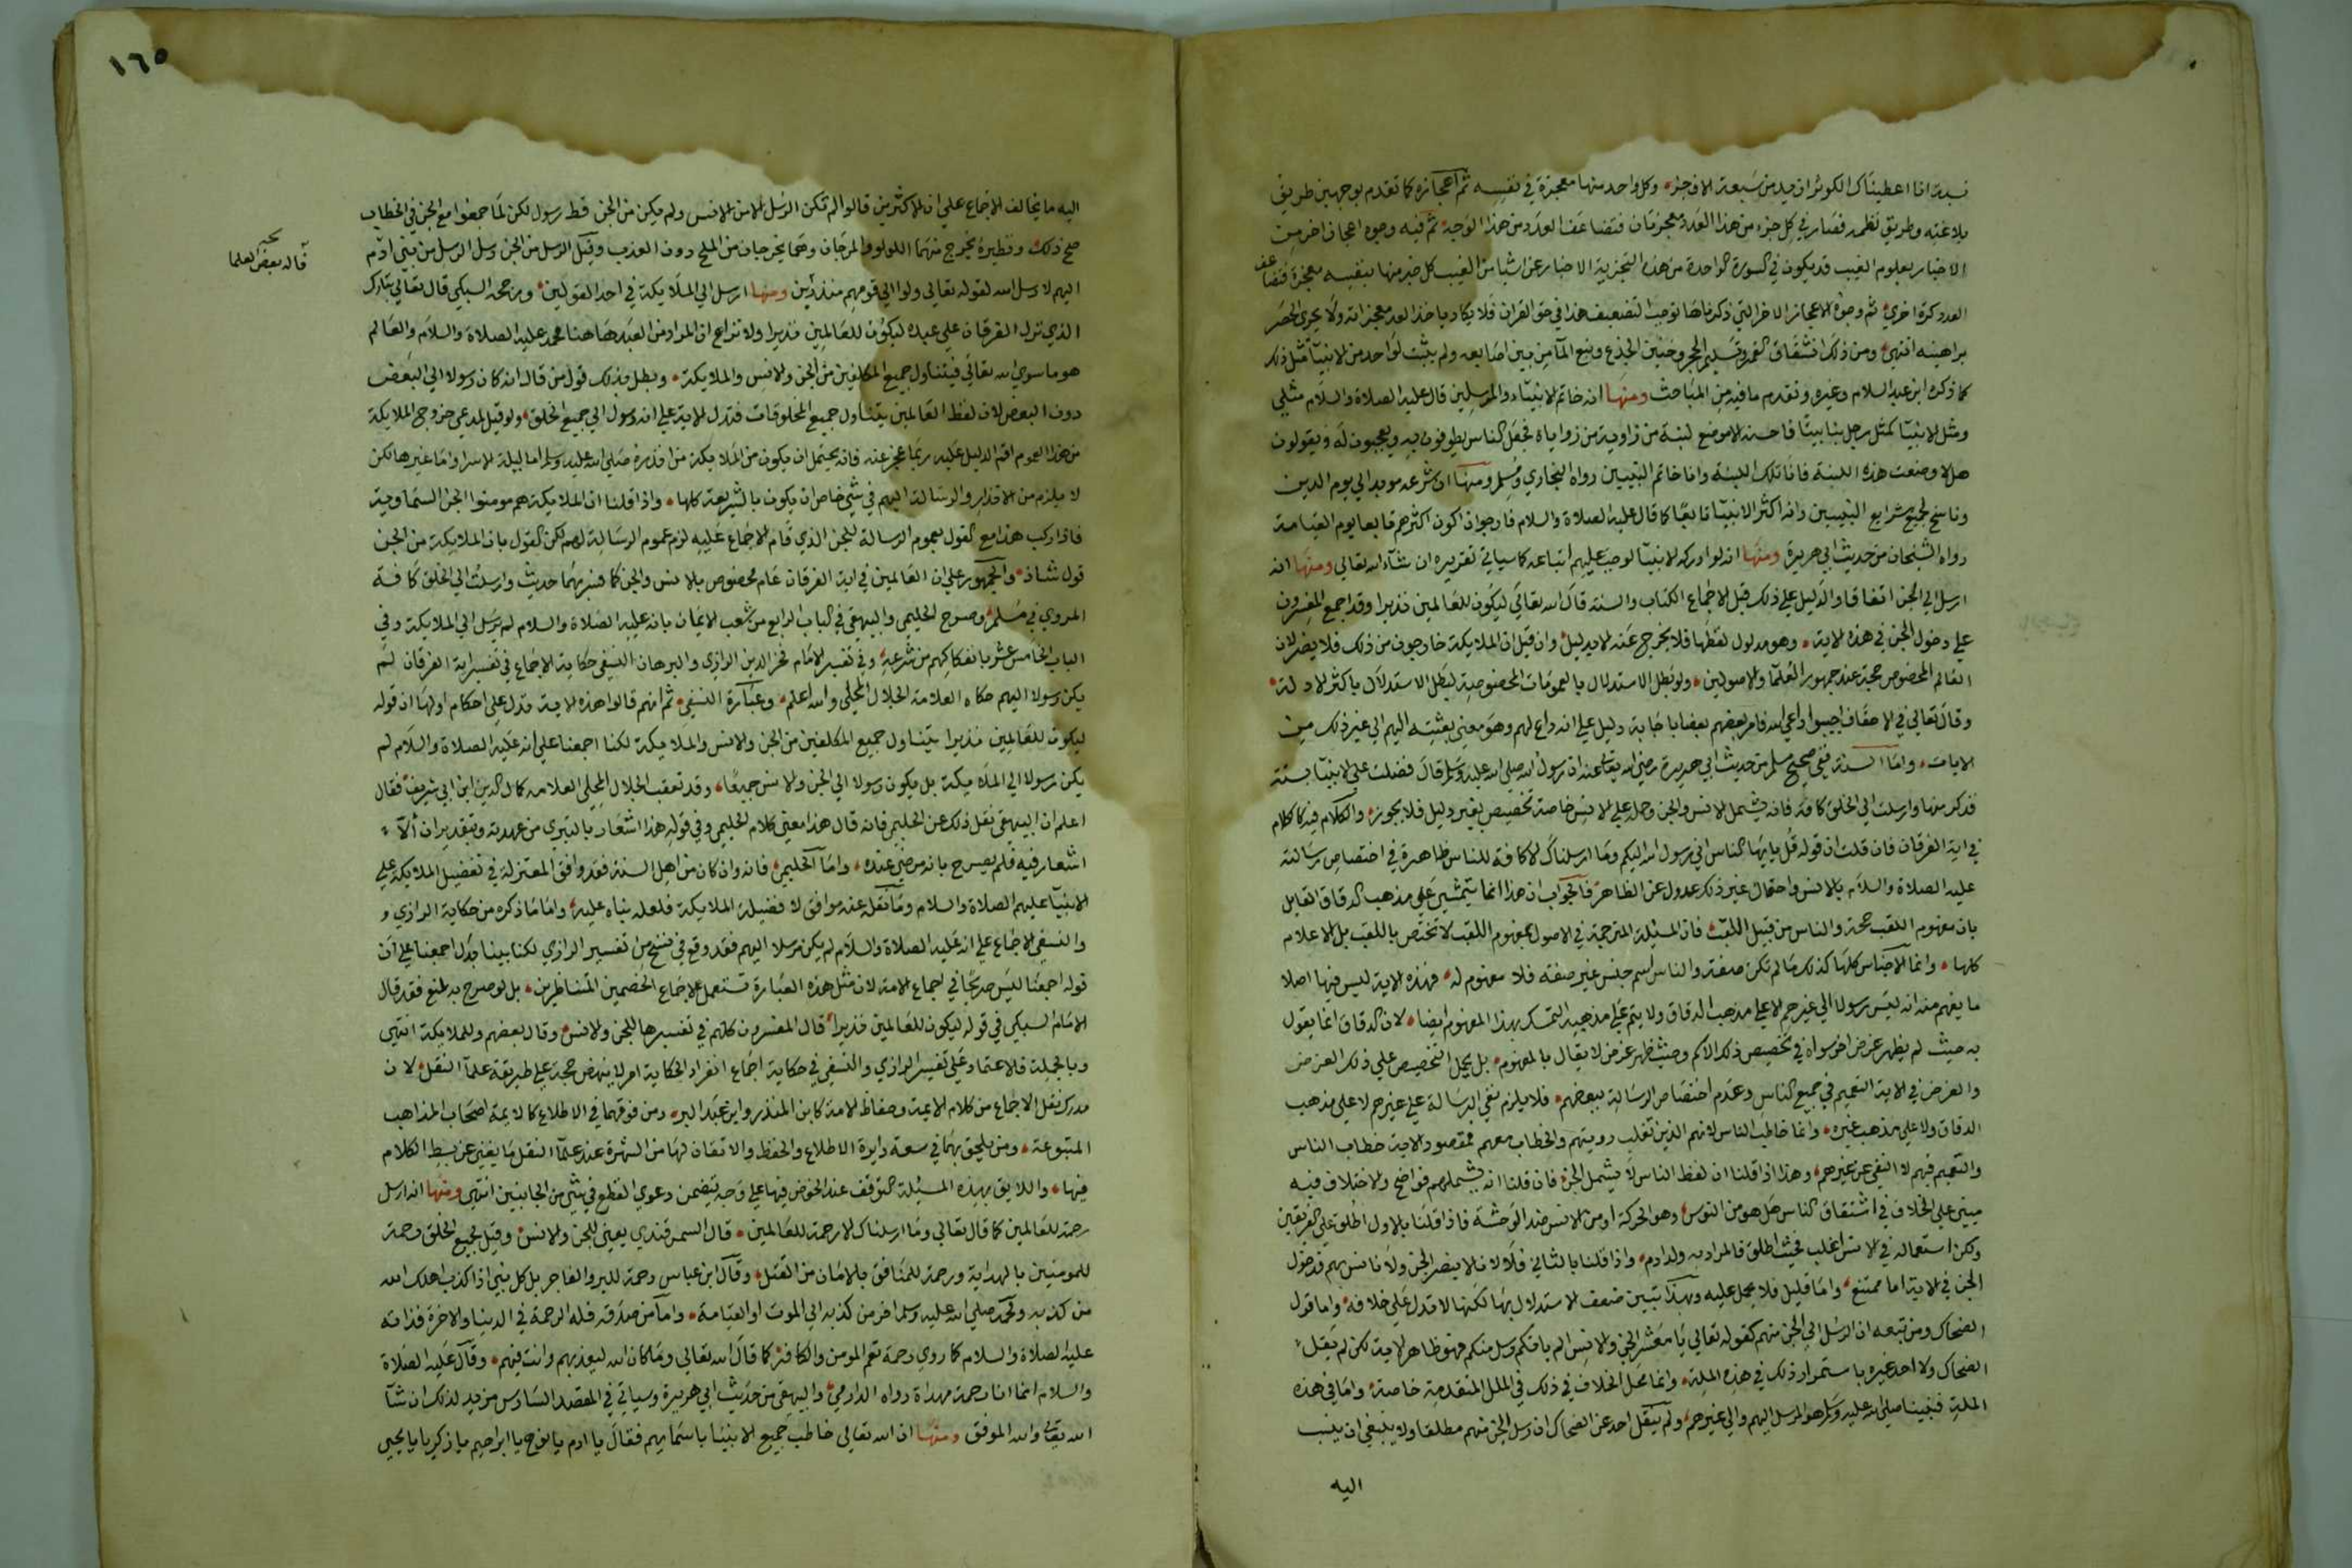 نسبة انا اعطيناك الكوثر ازيد من سبعة الاف جزء وكل واحد منها معجزة في نفسه ثم اعجازه كما تقدم بوجهين طريق
بلاغته وطريق نظمه فصار في كل جزء من هذا العدد معجزتان فتضاعف العدد من هذا الوجه ثم فيه وجوه اعجاز اخر من
الاخبار بعلوم الغيب فقد يكون في السورة الواحدة من هذه التجزية الاخبار عن اشيا من الغيب كل خبر منها بنفسه معجزة فتضاعف
العدد كرة اخري ثم وجوه الاعجاز الاخر التي ذكرناها توجب التضعيف هذا في حق القران فلا يكاد ياخذ العد معجزاته ولا يحوي الحصر
براهينه انتهي ومن ذلك انشقاق القمر وتسليم الحجر وحنين الجذع ونبع المآ من بين اصابعه ولم يثبت لواحد من الانبيآ مثل ذلك
كما ذكره ابن عبد السلام وغيره وتقدم ما فيه من المباحث ومنها انه خاتم الانبيآء والمرسلين قال عليه الصلاة والسلام مثلي
ومثل الانبيآ كمثل رجل بنا بيتا فاحسنه الا موضع لبنة من زاوية من زواياه فجعل الناس يطوفون به ويعجبون له ويقولون
هلا وضعت هذه اللبنة فانا تلك اللبنة وانا خاتم النبيين رواه البخاري ومسلم ومنها ان شرعه مويد الي يوم الدين
وناسخ لجميع شرايع النبيين وانه اكثر الانبيآ تابعا كما قال عليه الصلاة والسلام فارجو ان اكون اكثرهم تابعا يوم القيامة
رواه الشيخان من حديث ابي هريرة ومنها انه لو ادركه الانبيآ لوجب عليهم اتباعه كما سياتي تقريره ان شآء الله تعالي ومنها انه
ارسل الي الجن اتفاقا والدليل علي ذلك قبل الاجماع الكتاب والسنة قال الله تعالي ليكون للعالمين نذيرا وقد اجمع المفسرون
علي دخول الجن في هذه الاية وهو مدلول لفظها فلا يخرج عنه الا بدليل وان قيل ان الملايكة خارجون من ذلك فلا يضر لان
العالم المخصوص حجة عند جمهور العلمآ والاصولين ولو بطل الاستدلال بالعمومات المخصوصة لبطل الاستدلال باكثر الادلة
وقال تعالي في الاحقاف اجيبوا داعي الله فامر بعضهم بعضا باجابته دليل علي انه داع لهم وهو معني بعثته اليهم الي غير ذلك من
الايات واما السنة ففي صحيح مسلم من حديث ابي هريرة رضي الله تعالي عنه ان رسول الله صلي الله عليه وسلم قال فضلت علي الانبيآ بستة
فذكر منها وارسلت الي الخلق كافة فانه يشمل الانس والجن وحمله علي الانس خاصة تخصيص بغير دليل فلا يجوز والكلام فيه كالكلام
في اية الفرقان فان قلت ان قوله قل يا ايها الناس اني رسول الله اليكم وما ارسلناك الا كافة للناس ظاهرة في اختصاص رسالته
عليه الصلاة والسلام بالانس واحتمال غير ذلك عدول عن الظاهر فالجواب ان هذا انما يتمشي علي مذهب الدقاق القايل
بان مفهوم اللقب حجة والناس من قبيل اللقب فان المسئلة المترجمة في الاصول بمفهوم اللقب لا تختص باللقب بل الاعلام
كلها وانما الاجناس كلها كذلك ما لم تكن صفة والناس اسم جنس غير صفة فلا مفهوم له فهذه الاية ليس فيها اصلا
ما يفهم منه انه ليس رسولا الي غيرهم الا علي مذهب الدقاق ولا يتم علي مذهبه التمسك بهذا المفهوم ايضا لان الدقاق انما يقول
به حيث لم يظهر غرض اخر سواه في تخصيص ذلك الاسم وحيث ظهر غرض لا يقال بالمفهوم بل يحمل التخصيص علي ذلك الغرض
والغرض في الاية التعميم في جميع الناس وعدم اختصاص الرسالة ببعضهم فلا يلزم نفي الرسالة علي غيرهم لا علي مذهب
الدقاق ولا علي مذهب غيره وانما خاطب الناس لانهم الذين تغلب رويتهم والخطاب معهم فمقصود الاية خطاب الناس
والتعميم فيهم لا النفي عن غيرهم وهذا اذا قلنا ان لفظ الناس لا يشمل الجن فان قلنا انه يشملهم فواضح والاختلاف فيه
مبني علي الخلاف في اشتقاق الناس هل هو من النوس وهو الحركة او من الانس ضد الوحشة فاذا قلنا بالاول اطلق علي الفريقين
ولكن استعماله في الانس اغلب فحيث اطلق فالمراد به ولد ادم واذا قلنا بالثاني فلا لانا لا نبصر الجن ولا نانس بهم فدخول
الجن في الاية اما ممتنع واما قليل فلا يحمل عليه وبهذا تبين ضعف الاستدلال بها لكنها لا تدل علي خلافه واما قول
الضحاك ومن تبعه ان الرسل الي الجن منهم كقوله تعالي يا معشر الجن والانس الم ياتكم رسل منكم فهو ظاهر الاية لكن لم يقل
الضحاك ولا احد غيره باستمرار ذلك في هذه الملة وانما محل الخلاف في ذلك في الملل المتقدمة خاصة واما في هذه
الملة فنبينا صلي الله عليه وسلم هو المرسل اليهم والي غيرهم ولم ينقل احد عن الضحاك ان رسل الجن منهم مطلقا ولا ينبغي ان ينسب
اليه
١٦٥
اليه ما يخالف الاجماع علي ان الاكثرين قالوا لم تكن الرسل الا من الانس ولم يكن من الجن قط رسول لكن لما جمعوا مع الجن في الخطاب
صح ذلك ونظيره يخرج منهما اللولو والمرجان وهما يخرجان من الملح دون العذب وقيل الرسل من الجن رسل الرسل من بني ادم
اليهم لا رسل الله لقوله تعالي ولوا الي قومهم منذرين ومنها ارسل الي الملايكة في احد القولين ورجحه السبكي قال تعالي تبارك
قاله بعض العلما
الذي نزل الفرقان علي عبده ليكون للعالمين نذيرا ولا نزاع ان المراد من العبد هاهنا محمد عليه الصلاة والسلام والعالم
هو ما سوي الله تعالي فيتناول جميع المكلفين من الجن والانس والملايكة وبطل بذلك قول من قال انه كان رسولا الي البعض
دون البعض لان لفظ العالمين يتناول جميع المخلوقات فتدل الاية علي انه رسول الي جميع الخلق ولو قيل لمدعي خروج الملايكة
من هذا العموم اقم الدليل عليه ربما عجز عنه فانه يحتمل ان يكون من الملايكة من انذره صلي الله عليه وسلم اما ليلة الاسرا واما غيرها لكن
لا يلزم من الانذار والرسالة اليهم في شي خاص ان يكون بالشريعة كلها واذا قلنا ان الملايكة هم مومنوا الجن السماوية
فاذا ركب هذا مع القول بعموم الرسالة للجن الذي قام الاجماع عليه لزم عموم الرسالة لهم لكن القول بان الملايكة من الجن
قول شاذ والجمهور علي ان العالمين في اية الفرقان عام مخصوص بالانس والجن كما فسر بهما حديث وارسلت الي الخلق كافة
المروي في مسلم وصرح الحليمي والبيهقي في الباب الرابع من شعب الايمان بانه عليه الصلاة والسلام لم يرسل الي الملايكة وفي
الباب الخامس عشر بانفكاكهم من شرعه وفي تفسير الامام فخر الدين الرازي والبرهان النسفي حكاية الاجماع في تفسير اية الفرقان لم
يكن رسولا اليهم حكاه العلامة الجلال المحلي والله اعلم وعبارة النسفي ثم انهم قالوا هذه الاية تدل علي احكام اولها ان قوله
ليكون للعالمين نذيرا يتناول جميع المكلفين من الجن والانس والملايكة لكنا اجمعنا علي انه عليه الصلاة والسلام لم
يكن رسولا الي الملايكة بل يكون رسولا الي الجن والانس جميعا وقد تعقب الجلال المحلي العلامه كمال الدين ابن ابي شريف فقال
اعلم ان البيهقي نقل ذلك عن الحليمي فانه قال هذا معني كلام الحليمي وفي قوله هذا اشعار بالتبري من عهدته وبتقدير ان لا
اشعار فيه فلم يصرح بانه مرضي عنده واما الحليمي فانه وان كان من اهل السنة فقد وافق المعتزلة في تفضيل الملايكة علي
الانبيآ عليهم الصلاة والسلام وما نقله عنه موافق لافضلية الملايكة فلعله بناه عليه واما ما ذكره من حكاية الرازي و
والنسفي الاجماع علي انه عليه الصلاة والسلام لم يكن مرسلا اليهم فقد وقع في نسخ من تفسير الرازي لكنا بينا بدل اجمعنا علي ان
قوله اجمعنا ليس صريحا في اجماع الامة لان مثل هذه العبارة تستعمل لاجماع الخصمين المتناظرين بل لو صرح به لمنع فقد قال
الامام السبكي في قوله ليكون للعالمين نذيرا قال المفسرون كلهم في تفسيرها للجن والانس وقال بعضهم وللملايكة انتهي
وبالجملة فلا اعتماد علي تفسير الرازي والنسفي في حكاية اجماع انفراد الحكاية امر لا ينهض حجة علي طريقة علمآ النقل لان
مدرك نقل الاجماع من كلام الايمة وحفاظ الامة كابن المنذر وابن عبد البر ومن فوقهما في الاطلاع كالايمة اصحاب المذاهب
المتبوعة ومن يلحق بهما في سعة دايرة الاطلاع والحفظ والاتقان لها من الشهرة عند علمآ النقل ما يغني عن بسط الكلام
فيها واللايق بهذه المسئلة التوقف عند الخوض فيها علي وجه يتضمن دعوي القطع في شي من الجانبين انتهي ومنها انه ارسل
رحمة للعالمين كما قال تعالي وما ارسلناك الا رحمة للعالمين قال السمرقندي يعني للجن والانس وقيل لجميع الخلق رحمة
للمومنين بالهداية ورحمة للمنافق بالامان من القتل وقال ابن عباس رحمة للبر والفاجر بل كل نبي اذا كذب اهلك الله
من كذبه ومحمد صلي الله عليه وسلم اخر من كذبه الي الموت او القيامة واما من صدقه فله الرحمة في الدنيا والاخرة فذاته
عليه الصلاة والسلام كما روي رحمة تعم المومن والكافر كما قال الله تعالي وما كان الله ليعذبهم وانت فيهم وقال عليه الصلاة
والسلام انما انا رحمة مهداة رواه الدارمي والبيهقي من حديث ابي هريرة وسياتي في المقصد السادس مزيد لذلك ان شآ
الله تعالي والله الموفق ومنها ان الله تعالي خاطب جميع الانبيا باسمايهم فقال يا ادم يا نوح يا ابراهيم يا زكريا يا يحيي